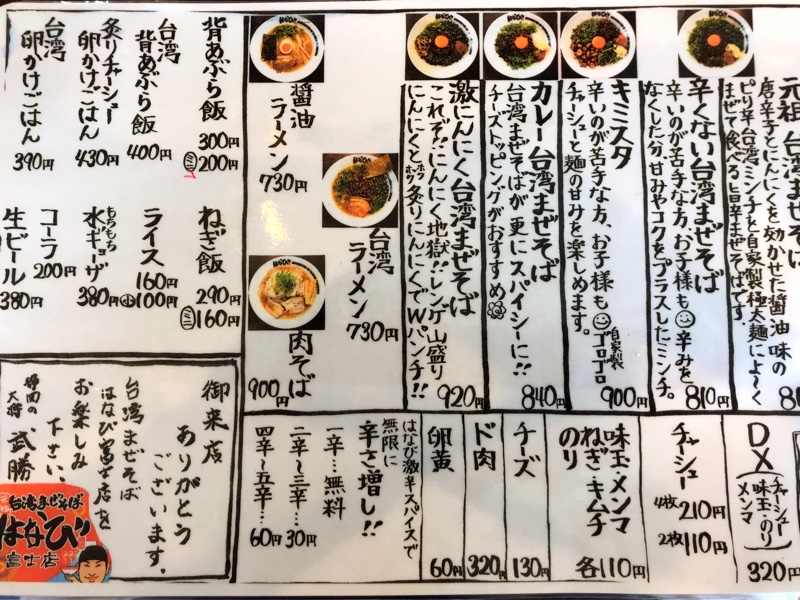 元祖 台湾まぜそば
唐辛子とにんにくを効かせた醤油味の
ピリ辛台湾ミンチを自家製極太麺によ〜く
まぜて食べる旨辛まぜそばです。
辛くない台湾まぜそば
辛いのが苦手な方、お子様も 辛みを
なくした分、甘みやコクをプラスしたミンチ。
810円
キミスタ
辛いのが苦手な方、お子様も 自家製ゴロゴロ
チャーシューと麺の甘みを楽しめます。
900円
カレー台湾まぜそば
台湾まぜそばが更にスパイシーに!!
チーズトッピングがおすすめ
840円
激にんにく台湾まぜそば
これぞ!!にんにく地獄!!レンゲ山盛り
にんにくとホクホク炙りにんにくでWパンチ!!
920円
醤油ラーメン
730円
台湾ラーメン
730円
肉そば
900円
背あぶら飯
300円
ミニ 200円
台湾背あぶら飯
400円
炙りチャーシュー卵かけごはん
430円
台湾卵かけごはん
390円
ねぎ飯
290円
ミニ 160円
ライス
160円
小100円
もちもち水ギョーザ
380円
コーラ
200円
生ビール
380円
DX(チャーシュー 味玉・のり メンマ)
320円
チャーシュー
4枚 210円
2枚 110円
味玉・メンマ
ねぎ・キムチ
のり
各110円
チーズ
130円
ド肉
320円
卵黄
60円
はなび激辛スパイスで
無限に
辛さ増し!!
一辛…無料
二辛〜三辛…30円
四辛〜五辛…60円
御来店
ありがとう
ございます。
台湾まぜそば
はなび富士店を
お楽しみ
下さい。
静岡の大将 武勝
元祖 台湾まぜそば
はなび
富士店